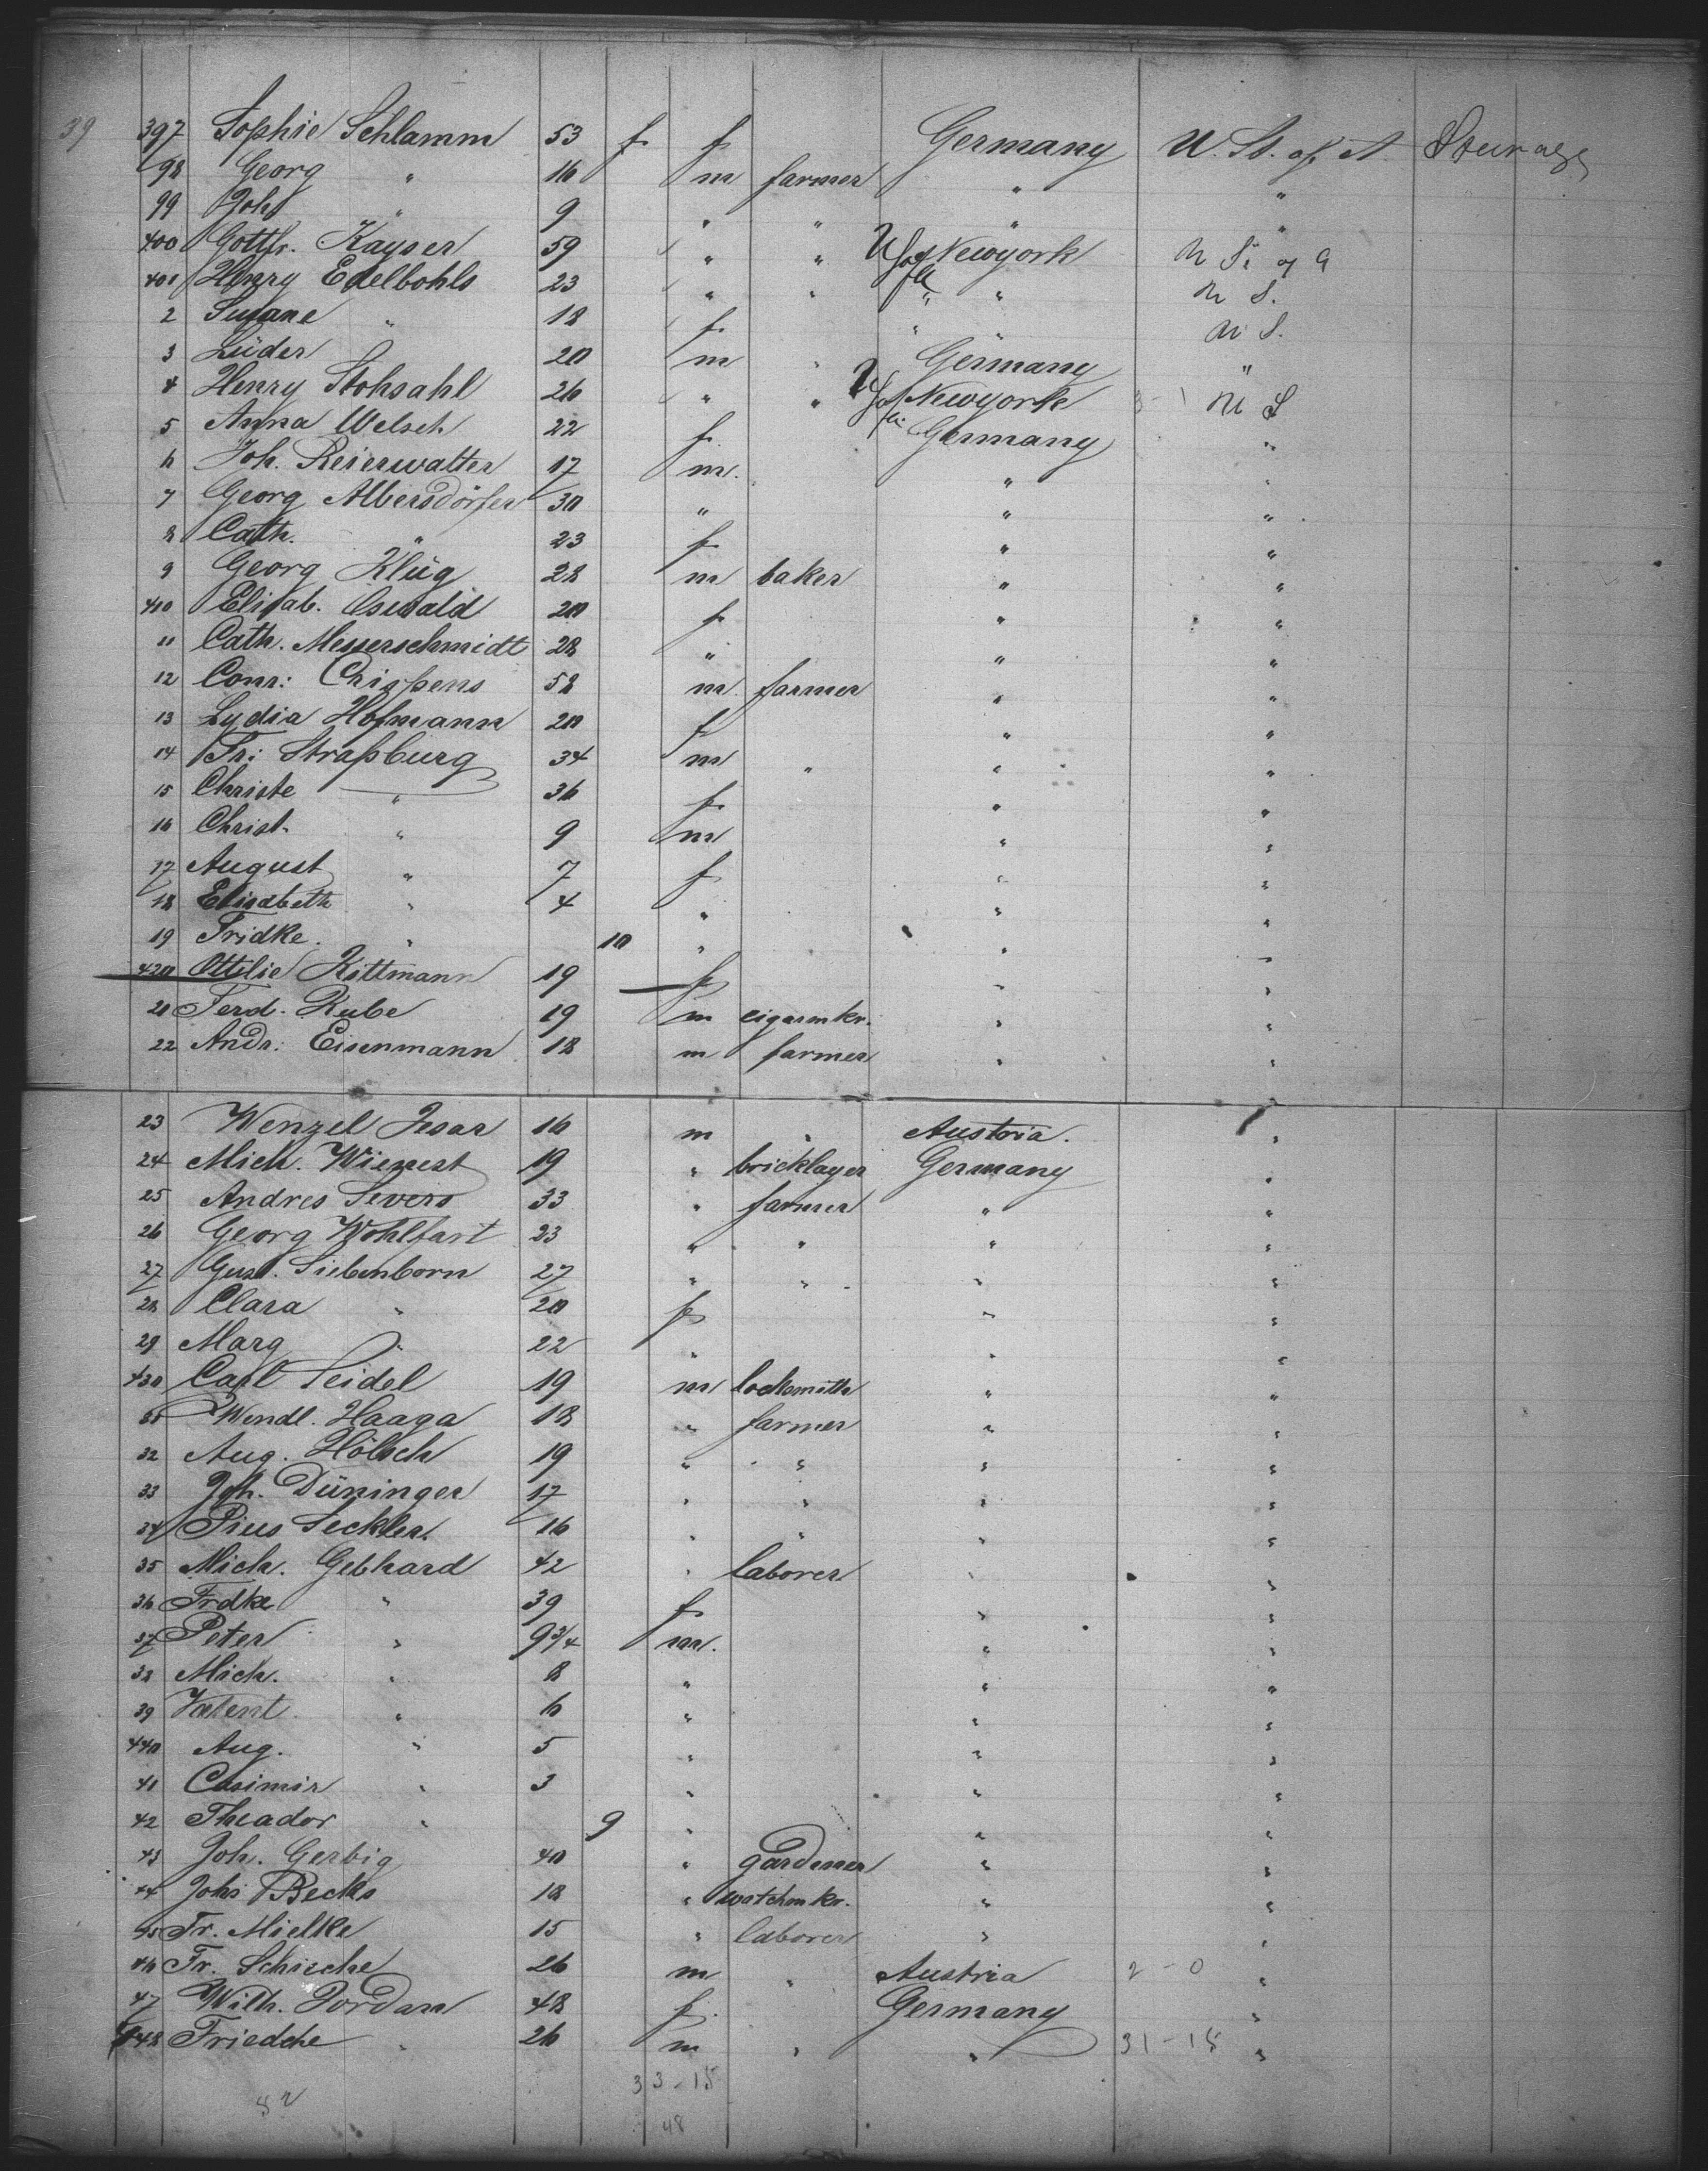 39 397 Sophie Schlamm 53 f f Germany U. St. of A. Steerage
98 Georg " 16 m farmer " "
99 Joh " 9 " " " "
400 Gottfr. Kayser 59 " " U S of A Newyork U St of A
401 Henry Edelbohls 23 " " " " U S.
2 Susane " 18 f " " U S.
3 Lüder " 20 m " Germany "
4 Henry Stohsahl 26 " " U S of A Newyork U S
5 Anna Welsch 22 f Germany "
6 Joh. Reierwalter 17 m. " "
7 Georg Albersdörfer 30 " " "
8 Cath. " 23 f " "
9 Georg Klüg 28 m baker " "
410 Elisab. Oswald 20 f " "
11 Cath. Messerschmidt 28 " " "
12 Conr: 58 m farmer " "
13 Lydia Hofmann 20 f " "
14 Fr: Straßburg 34 m " " "
15 Christe " 36 f " "
16 Christ. " 9 m " "
17 August " 7 f " "
18 Elisabeth " 4 " " "
19 Fridke. " 10 " " "
420 Ottilie Kittmann 19 f " "
21 Ferd. Kube 19 m cigarmkr. " "
22 Andr: Eisenmann 18 m farmer " "
23 Wenzel Jesar 16 m " Austria. "
24 Mich. 19 " bricklayer Germany "
25 Andres Severs 33 " farmer " "
26 Georg Wohlfart 23 " " " "
27 Gust. Siebenborn 27 " " " "
28 Clara " 20 f " "
29 Marg " 22 " " "
430 Carl Seidel 19 m locksmith " "
31 Wendl. Haaga 18 " farmer " "
32 Aug. Hölsch 19 " " " "
33 Joh. Düninger 17 " " " "
34 Pius Seckler. 16 " " " "
35 Mich. Gebhard 42 " laborer " "
36 Frdke " 39 f " "
37 Peter " 9 3/4 m. " "
38 Mich. " 8 " " "
39 Valent " 6 " " "
440 Aug. " 5 " " "
41 Casimir " 3 " " "
42 Theador " 9 " " "
43 Joh. Gerbig 40 " gardener " "
44 Johs Becks 18 " watchmkr. " "
45 Fr. Mielke 15 " laborer " "
46 Fr. Schirche 26 m " Austria 2 - 0 "
47 Wilh. Jordan 48 f. Germany "
448 Friedche " 26 m " " 31 - 15 "
33 - 15
52
48